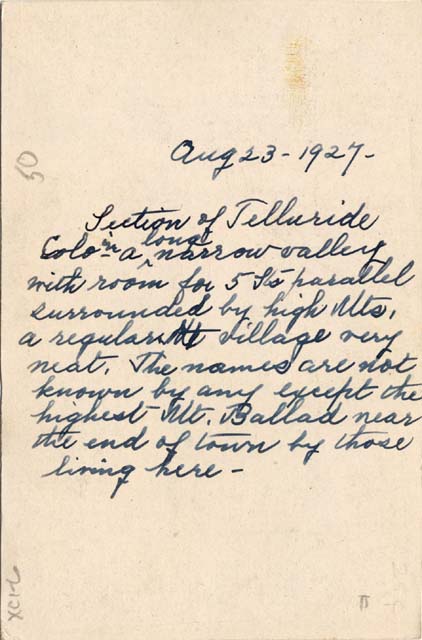 Aug 23 - 1927 -
50
Section of Telluride
Colo - in a long narrow valley
with room for 5 Sts parallel
surrounded by high Mts,
a regular Mt village very
neat. The names are not
known by any except the
highest Mt. Ballad near
the end of town by those
living here -